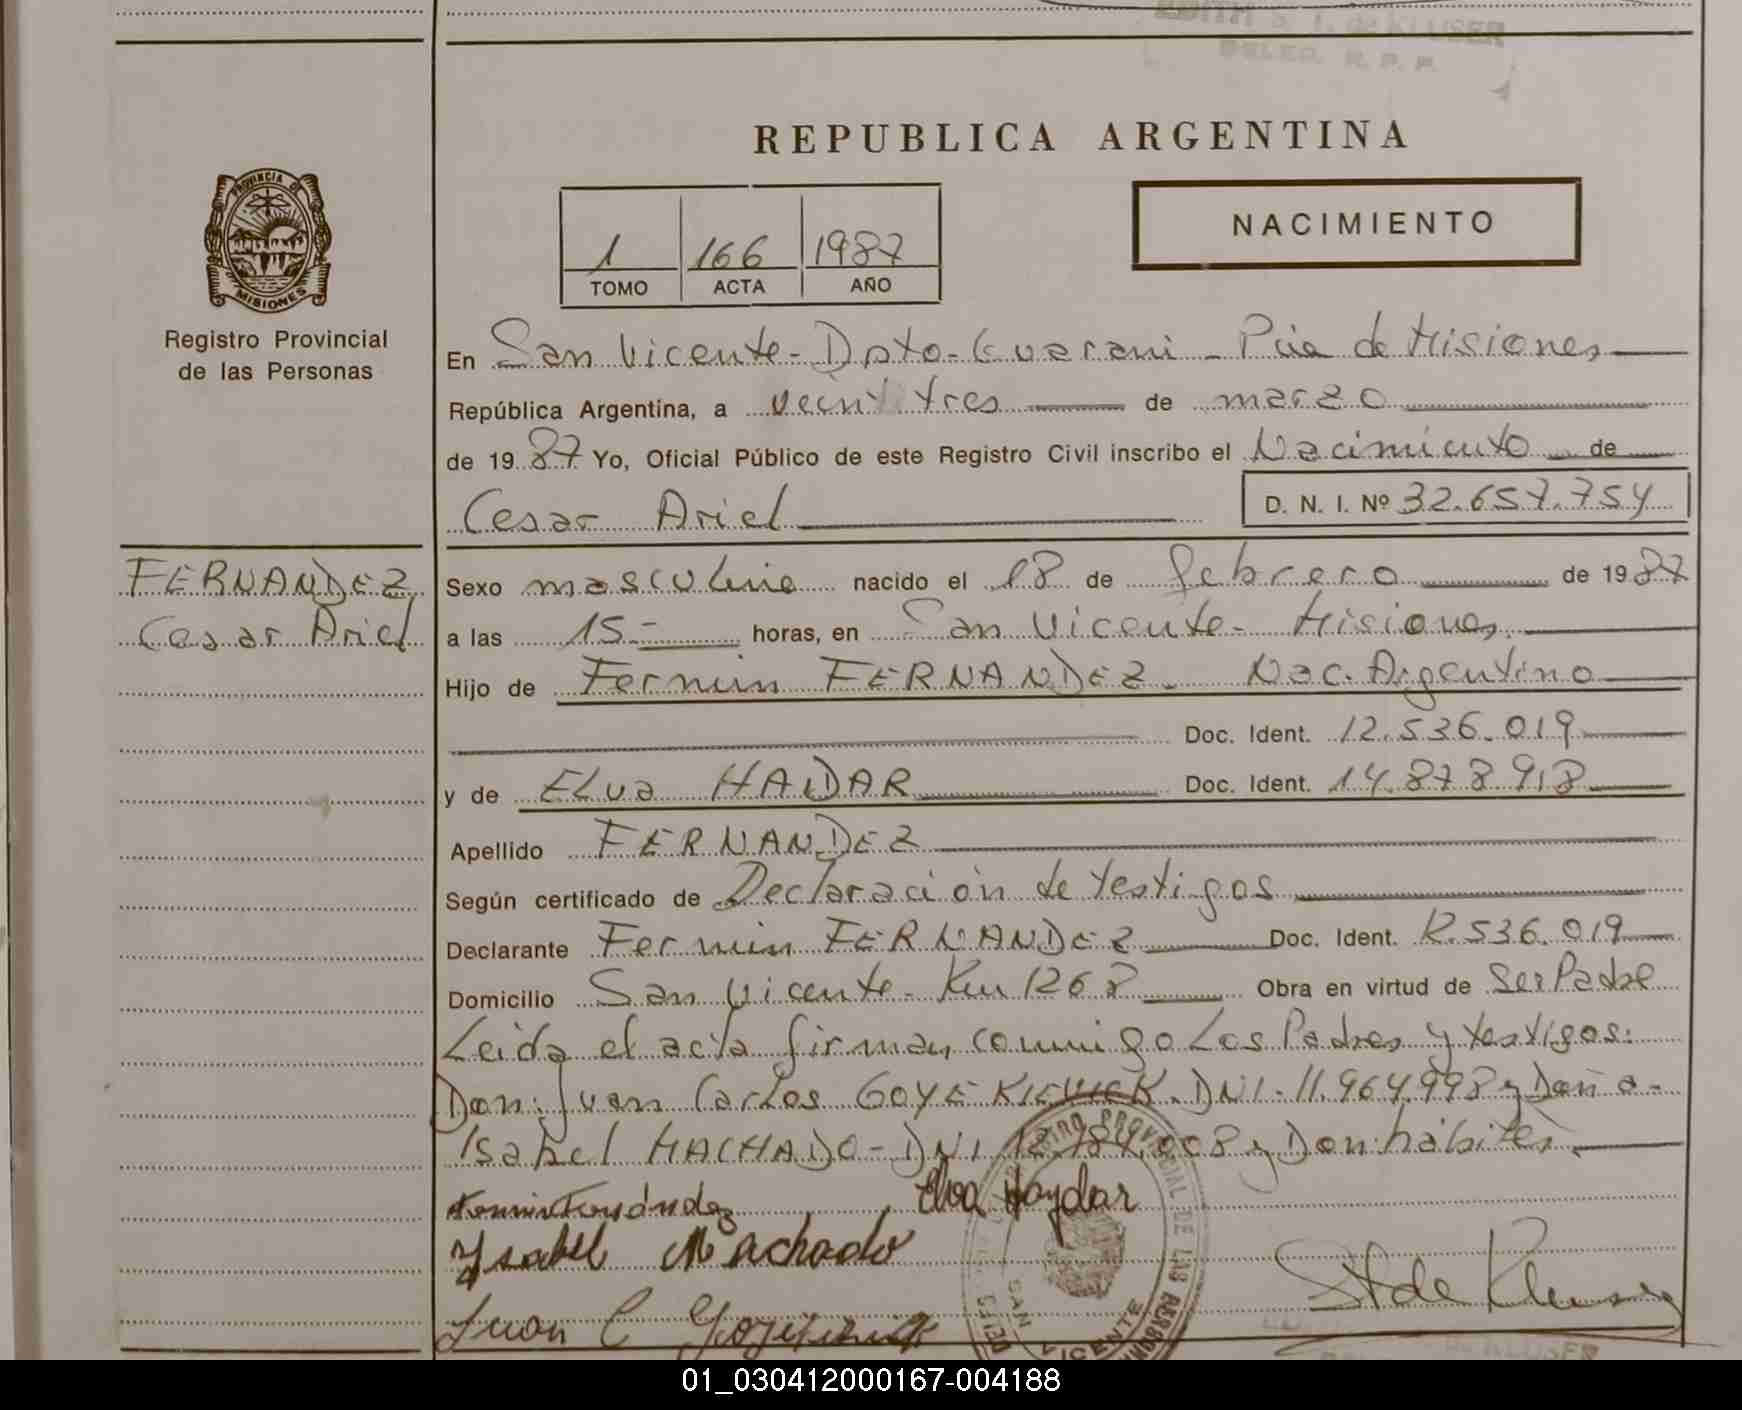 EDITH S. I. de KLUSER
DELEG. R. P. P.
REPUBLICA ARGENTINA
PROVINCIA DE
MISIONES
Registro Provincial
de las Personas
1 166 1987
TOMO ACTA AÑO
NACIMIENTO
En San Vicente - Dpto - Guarani - Pcia de Misiones
República Argentina, a veinti tres de marzo
de 19 87 Yo, Oficial Público de este Registro Civil inscribo el Nacimiento de
Cesar Ariel D. N. I. Nº 32.657.754
FERNANDEZ
Cesar Ariel
Sexo masculino nacido el 18 de febrero de 19 87
a las 15 - horas, en San Vicente - Misiones
Hijo de Fermin FERNANDEZ. Nac. Argentino
Doc. Ident. 12.536.019
y de ELva HAIDAR Doc. Ident. 14.878.918
Apellido FERNANDEZ
Según certificado de Declaración de testigos
Declarante Fermin FERNANDEZ Doc. Ident. 12.536.019
Domicilio San Vicente - Km 1268 Obra en virtud de Ser Padre
Leida el acta firman conmigo Los Padres y testigos:
Don: Juan Carlos GOYEKIEVICK. DNI - 11.964.998 y Doña -
Isabel MACHADO - DNI 18.784.008 y Don: hábiles
Fermin Fernández Elva Haydar
Ysabel Machado
Juan C
SI de Kluser
SAN VICENTE
01_030412000167-004188